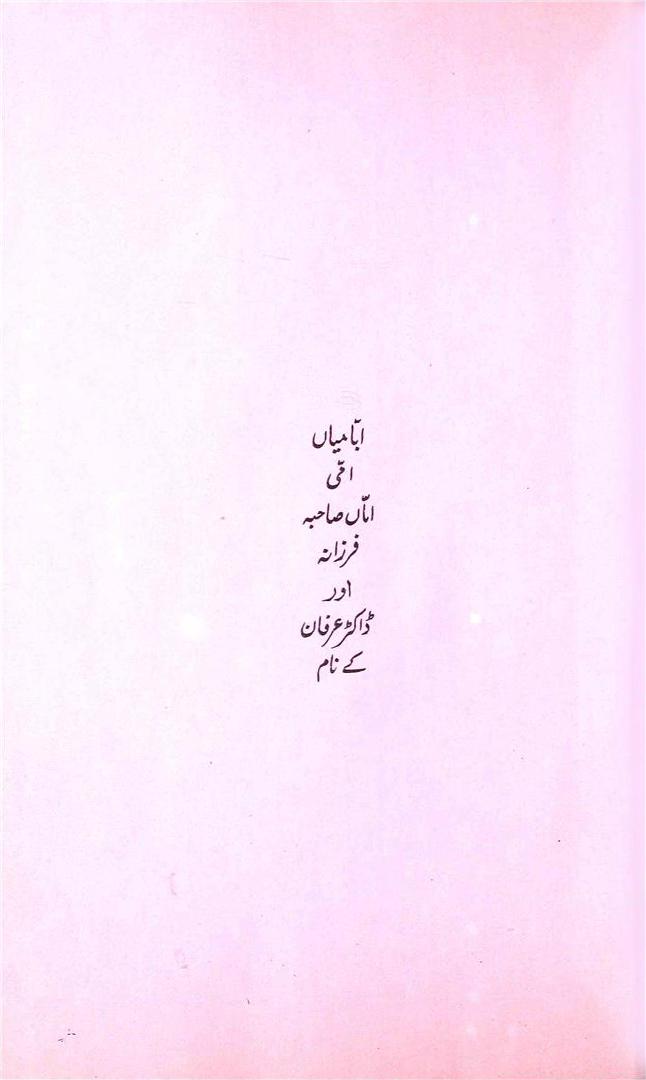 ابّا میاں
امّی
امّاں صاحبہ
فرزانہ
اور
ڈاکٹر عرفان
کے نام